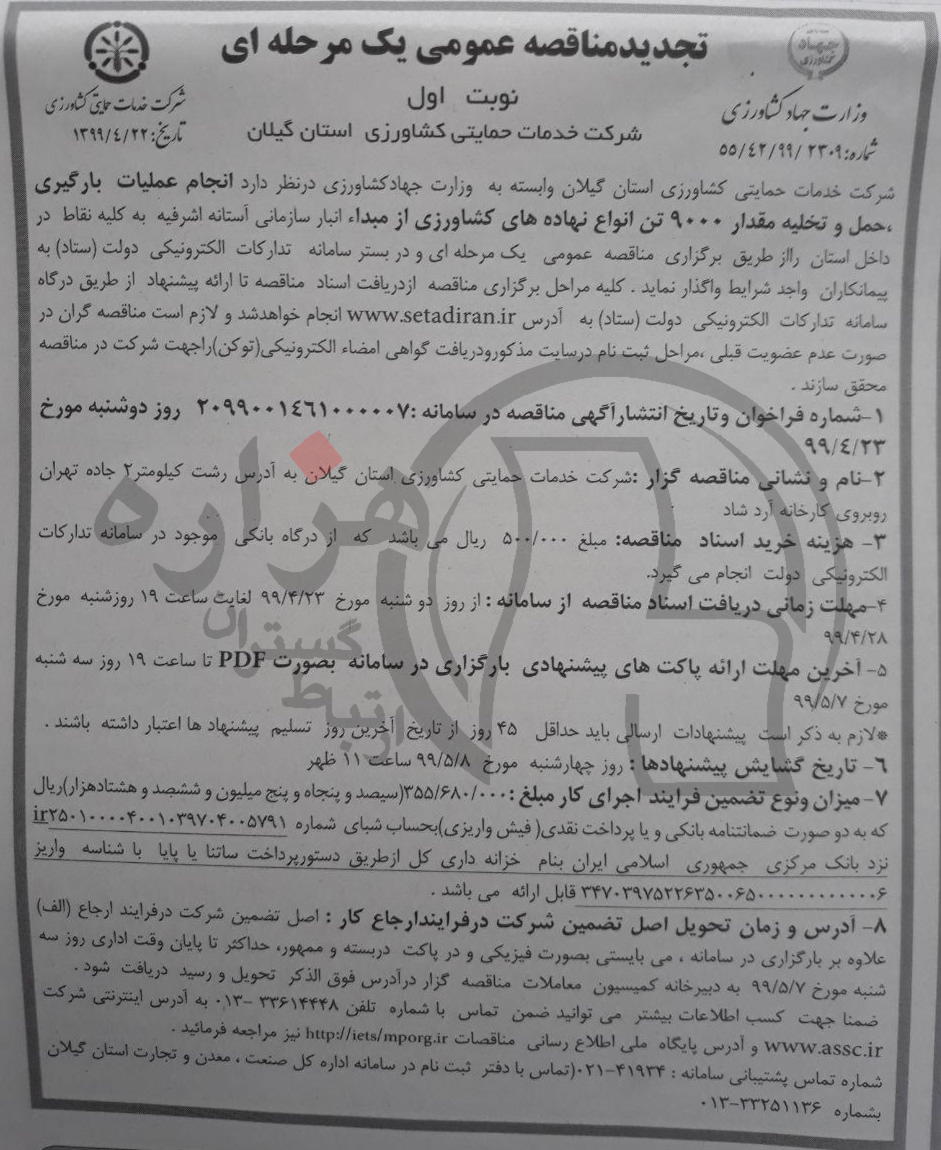 تجدیدمناقصه عمومی یک مرحله ای
جهاد کشاورزی
نوبت اول
وزارت جهاد کشاورزی
شرکت خدمات حمایتی کشاورزی
شرکت خدمات حمایتی کشاورزی استان گیلان
شماره: ۵۵/٤۲/۹۹/۲۳۰۹
تاریخ: ۱۳۹۹/٤/۲۲
شرکت خدمات حمایتی کشاورزی استان گیلان وابسته به وزارت جهادکشاورزی درنظر دارد انجام عملیات بارگیری
،حمل و تخلیه مقدار ۹۰۰۰ تن انواع نهاده های کشاورزی از مبداء انبار سازمانی آستانه اشرفیه به کلیه نقاط در
داخل استان رااز طریق برگزاری مناقصه عمومی یک مرحله ای و در بستر سامانه تدارکات الکترونیکی دولت (ستاد) به
پیمانکاران واجد شرایط واگذار نماید . کلیه مراحل برگزاری مناقصه ازدریافت اسناد مناقصه تا ارائه پیشنهاد از طریق درگاه
سامانه تدارکات الکترونیکی دولت (ستاد) به آدرس www.setadiran.ir انجام خواهدشد و لازم است مناقصه گران در
صورت عدم عضویت قبلی ،مراحل ثبت نام درسایت مذکورودریافت گواهی امضاء الکترونیکی(توکن)راجهت شرکت در مناقصه
محقق سازند .
۱-شماره فراخوان وتاریخ انتشارآگهی مناقصه در سامانه :۲۰۹۹۰۰۱٤٦۱۰۰۰۰۰۷ روز دوشنبه مورخ
۹۹/٤/۲۳
۲-نام و نشانی مناقصه گزار :شرکت خدمات حمایتی کشاورزی استان گیلان به آدرس رشت کیلومتر۲ جاده تهران
روبروی کارخانه آرد شاد
۳- هزینه خرید اسناد مناقصه: مبلغ ۵۰۰/۰۰۰ ریال می باشد که از درگاه بانکی موجود در سامانه تدارکات
الکترونیکی دولت انجام می گیرد.
۴-مهلت زمانی دریافت اسناد مناقصه از سامانه : از روز دو شنبه مورخ ۹۹/۴/۲۳ لغایت ساعت ۱۹ روزشنبه مورخ
۹۹/۴/۲۸
۵- آخرین مهلت ارائه پاکت های پیشنهادی بارگزاری در سامانه بصورت PDF تا ساعت ۱۹ روز سه شنبه
مورخ ۹۹/۵/۷
*لازم به ذکر است پیشنهادات ارسالی باید حداقل ۴۵ روز از تاریخ آخرین روز تسلیم پیشنهاد ها اعتبار داشته باشند .
۶- تاریخ گشایش پیشنهادها : روز چهارشنبه مورخ ۹۹/۵/۸ ساعت ۱۱ ظهر
۷-میزان ونوع تضمین فرایند اجرای کار مبلغ :۳۵۵/۶۸۰/۰۰۰(سیصد و پنجاه و پنج میلیون و ششصد و هشتادهزار)ریال
که به دو صورت ضمانتنامه بانکی و یا پرداخت نقدی( فیش واریزی)بحساب شبای شماره ir۲۵۰۱۰۰۰۰۴۰۰۱۰۳۹۷۰۴۰۰۵۷۹۱
نزد بانک مرکزی جمهوری اسلامی ایران بنام خزانه داری کل ازطریق دستورپرداخت ساتنا یا پایا با شناسه واریز
قابل ارائه می باشد .
۸- آدرس و زمان تحویل اصل تضمین شرکت درفرایندارجاع کار : اصل تضمین شرکت درفرایند ارجاع (الف)
علاوه بر بارگزاری در سامانه ، می بایستی بصورت فیزیکی و در پاکت دربسته و ممهور، حداکثر تا پایان وقت اداری روز سه
شنبه مورخ ۹۹/۵/۷ به دبیرخانه کمیسیون معاملات مناقصه گزار درآدرس فوق الذکر تحویل و رسید دریافت شود .
ضمنا جهت کسب اطلاعات بیشتر می توانید ضمن تماس با شماره تلفن ۳۳۶۱۴۴۴۸ -۰۱۳ به آدرس اینترنتی شرکت
www.assc.ir و آدرس پایگاه ملی اطلاع رسانی مناقصات http://iets/mporg.ir نیز مراجعه فرمائید .
شماره تماس پشتیبانی سامانه : ۴۱۹۳۴-۰۲۱(تماس با دفتر ثبت نام در سامانه اداره کل صنعت ، معدن و تجارت استان گیلان
بشماره ۳۳۲۵۱۱۳۶-۰۱۳
هزاره
گستران
ارتباط